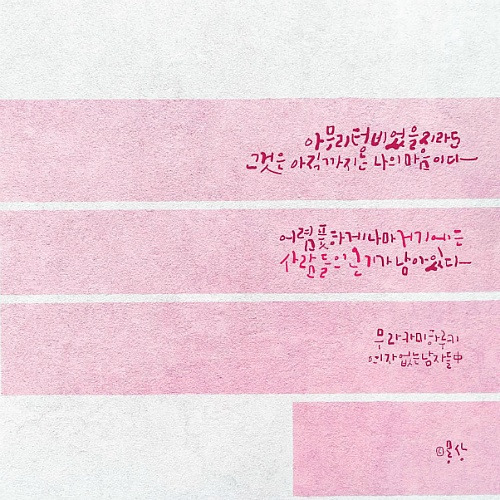 아무리 텅 비었을지라도
그것은 아직까지는 나의 마음이다
어렴풋하게나마 거기에는
사람들의 온기가 남아있다
무라카미하루키
여자 없는 남자들 中